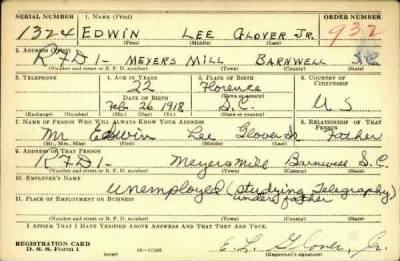 SERIAL NUMBER 1. NAME (Print) ORDER NUMBER
1324 EDWIN LEE GLOVER JR. 932
(First) (Middle) (Last)
2. ADDRESS (Print)
R F D 1 - MEYERS MILL BARNWELL S.C.
(Number and street or R. F. D. number) (Town) (County) (State)
3. TELEPHONE 4. AGE IN YEARS 5. PLACE OF BIRTH 6. COUNTRY OF CITIZENSHIP
22 Florence
(Town or county)
DATE OF BIRTH
Feb. 26 1918 S.C. U S
(Exchange) (Number) (Mo.) (Day) (Yr.) (State or country)
7. NAME OF PERSON WHO WILL ALWAYS KNOW YOUR ADDRESS 8. RELATIONSHIP OF THAT PERSON
Mr Edwin Lee Glover Sr Father
(Mr., Mrs., Miss) (First) (Middle) (Last)
9. ADDRESS OF THAT PERSON
R F D 1 - Meyers Mill Barnwell S.C.
(Number and street or R. F. D. number) (Town) (County) (State)
10. EMPLOYER'S NAME
Unemployed (Studying Telegraphy)
under father
11. PLACE OF EMPLOYMENT OR BUSINESS
(Number and street or R. F. D. number) (Town) (County) (State)
I AFFIRM THAT I HAVE VERIFIED ABOVE ANSWERS AND THAT THEY ARE TRUE.
REGISTRATION CARD
D. S. S. Form 1 (over) E. L. Glover, Jr.
(Registrant's signature)